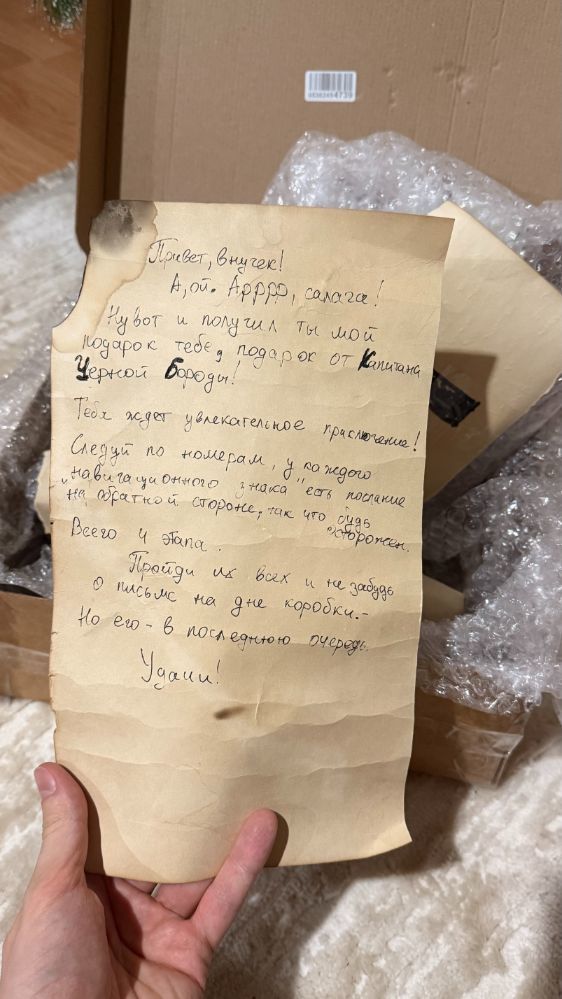 Привет, внучек!
А, ой. Арррр, салага!
Ну вот и получил ты мой
подарок тебе, подарок от Капитана
Черной Бороды!
Тебя ждет увлекательное приключение!
Следуй по номерам, у каждого
"навигационного знака" есть послание
на обратной стороне, так что будь
осторожен.
Всего 4 этапа.
Пройди их всех и не забудь
о письме на дне коробки.-
Но его - в последнюю очередь.
Удачи!